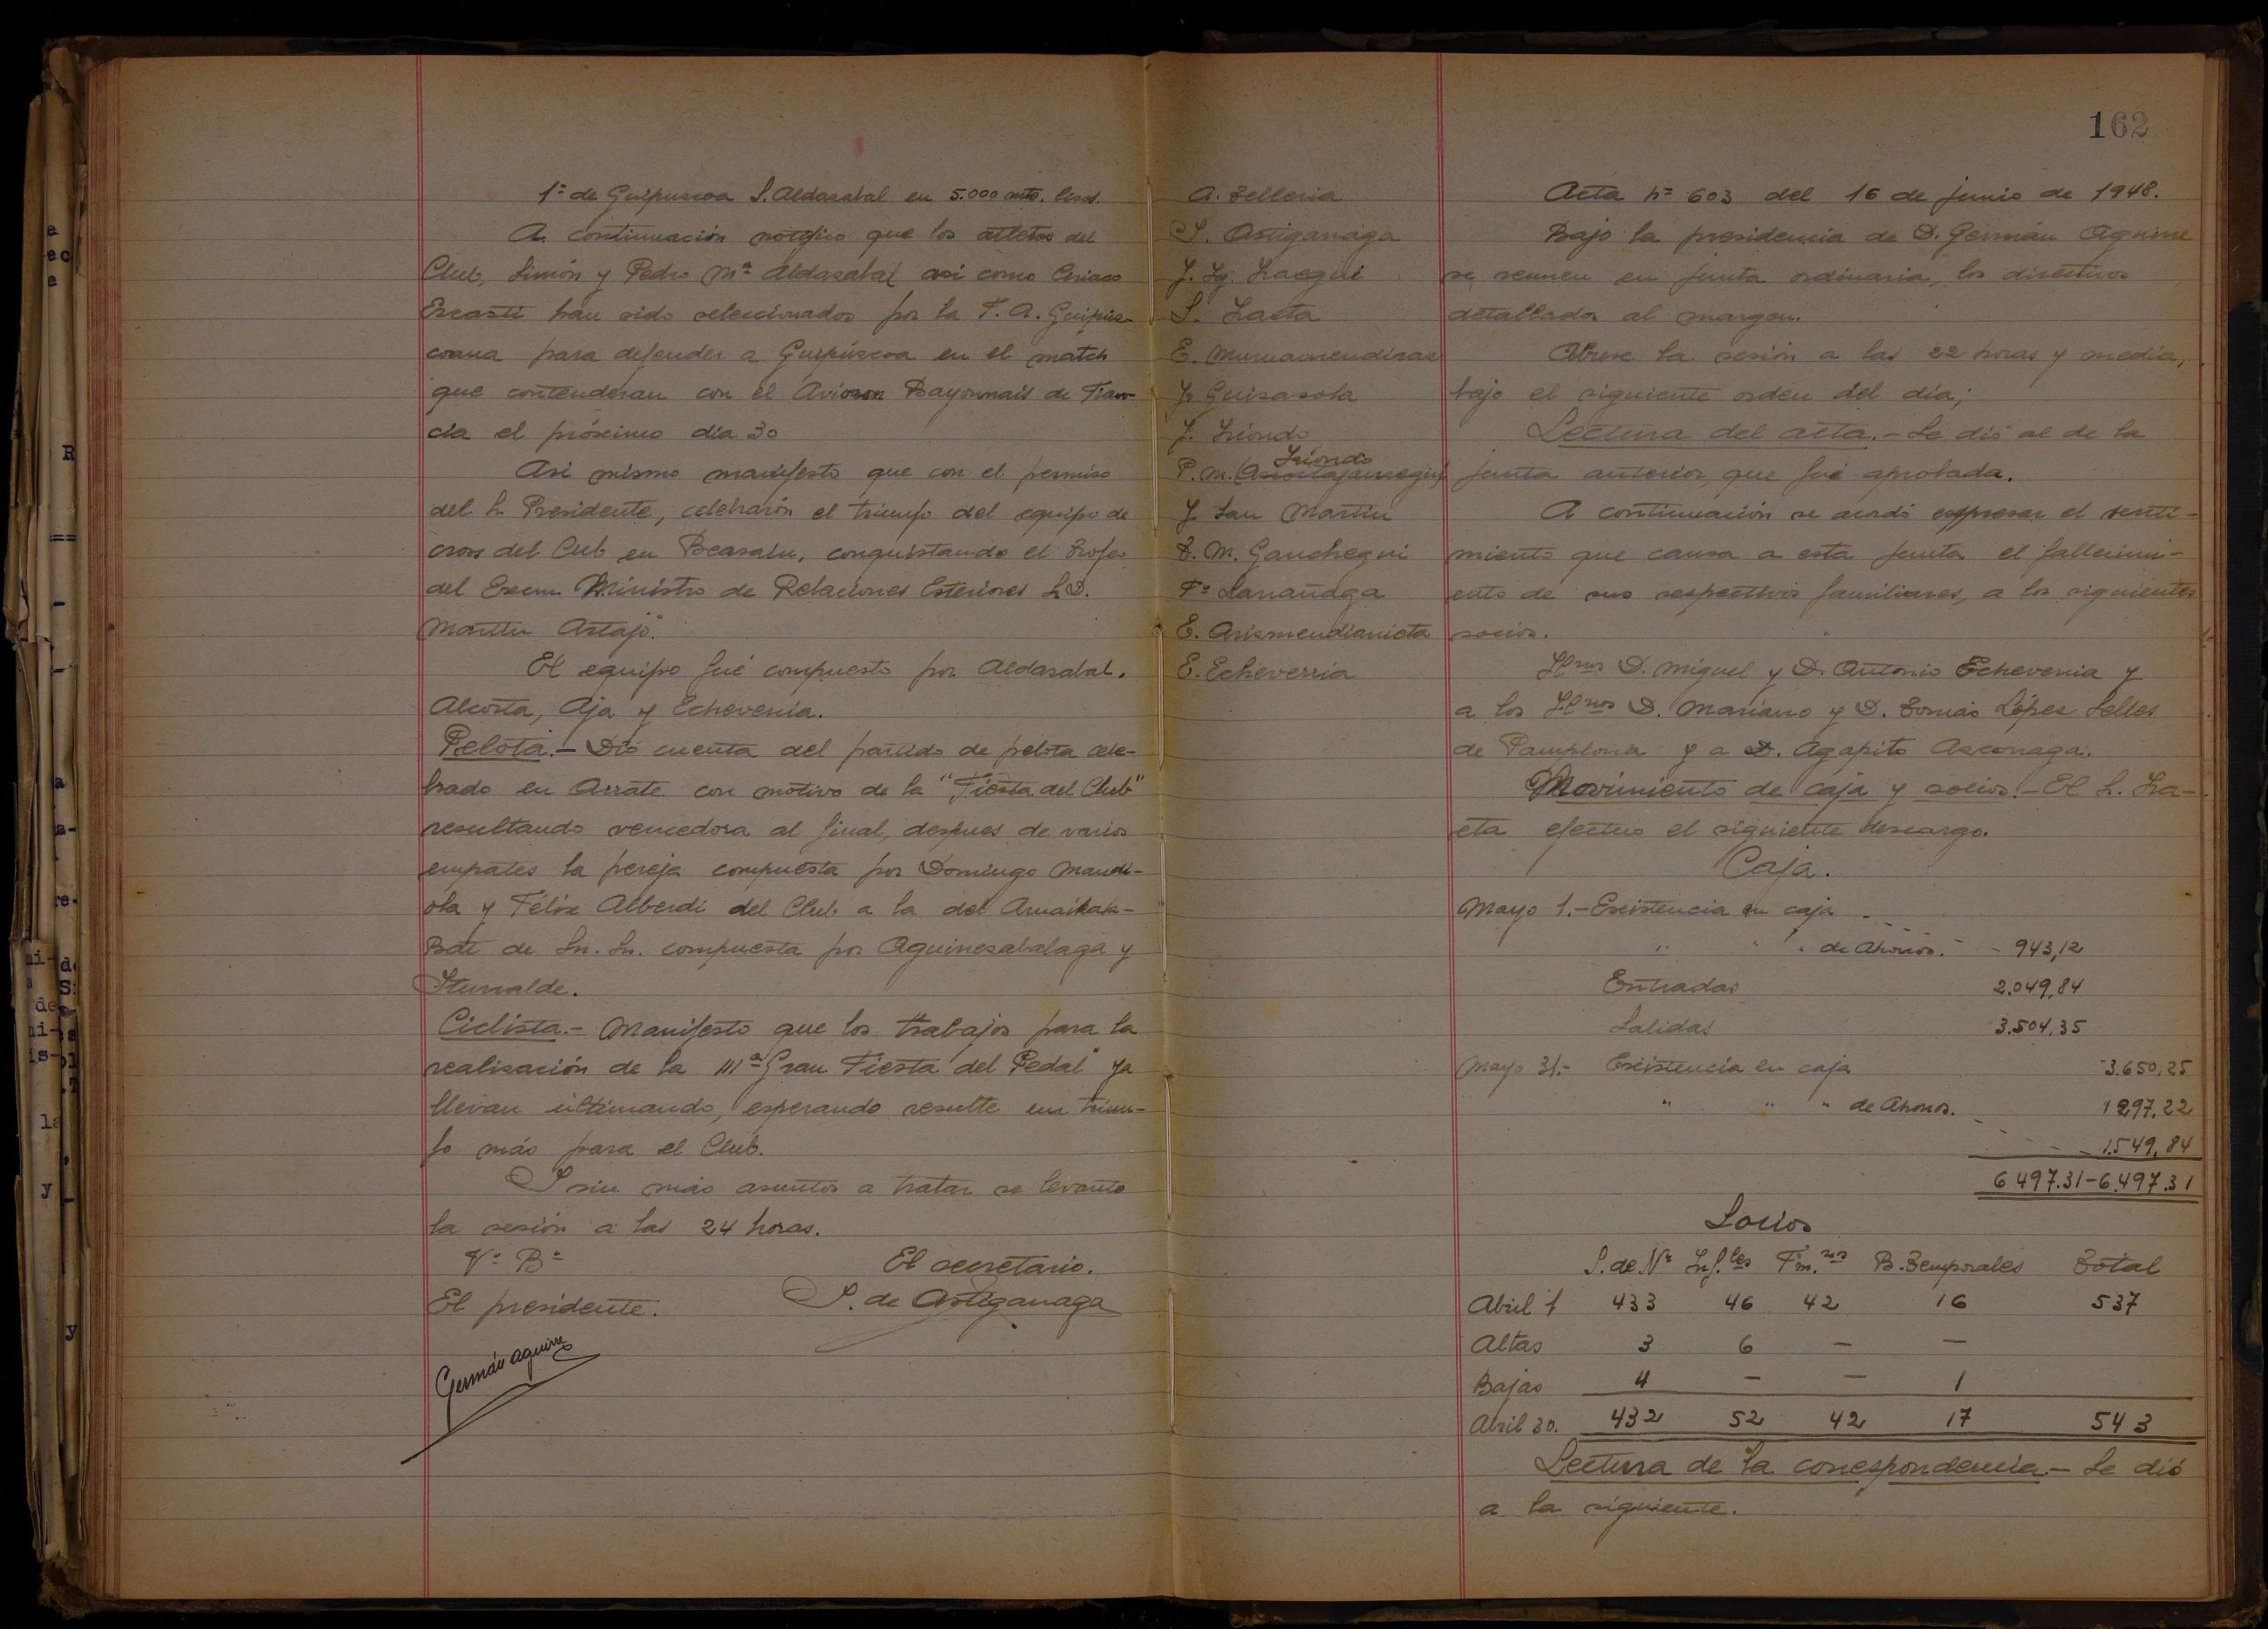 1º de Guipuscoa S. Aldasabal en 5.000 mts. lisos.
A continuación notifico que los atletas del
Club, Simón y Pedro Mª Aldasabal asi como Ciriaco
Escasti han sido seleccionados por la F. A. Guipus-
coana para defender a Guipúscoa en el match
que contenderan con el Aviron Bayonnais de Fran-
cia el próximo dia 30
Asi mismo manifesto que con el permiso
del Sr. Presidente, celebrarón el triumfo del equipo de
cross del Cub en Beasain, conquistando el Trofeo
del Excmo. Ministro de Relaciones Esteriores S. D.
Martin Artajo.
El equipo fué compuesto por Aldasabal.
Alcorta, Aja y Echeverria.
Pelota.- Dió cuenta del partido de pelota cele-
brado en Arrate con motivo de la "Fiesta del Club"
resultando vencedora al final, despues de varios
empates la pereja compuesta por Domingo Mandi-
ola y Félix Alberdi del Club a la del Amaikak-
Bat de Sn. Sn. compuesta por Aguinesabalaga y
Iturralde.
Ciclista.- Manifesto que los trabajos para la
realisación de la IIIª Gran Fiesta del Pedal" ya
llevan ultimando, esperando resulte un trium-
fo más para el Club.
I sin más asuntos a tratar se levanto
la sesión a las 24 horas.
Vº Bº
El secretario.
El presidente.
S. de Astiganaga
Germán Aguirre
162
A. Telleria
S. Astiganaga
J. Ig. Iraegui
S. Iraeta
E. Muruamendiras
J. Guisasola
J. Iriondo
Iriondo
P. M. (Ascoitajauregui)
J. San Martin
T. M. Ganchegui
Fº Larrañaga
E. Arismendiarrieta
E. Echeverria
Acta nº 603 del 16 de junio de 1948.
Bajo la presidencia de D. Germán Aguirre
se reunen en junta ordinaria, los directivos
detallados al margen.
Abrese la sesión a las 22 horas y media,
bajo el siguiente orden del día;
Lectura del acta.- Se dió al de la
junta anterior, que fué aprobada.
A continuación se acordó expresar el senti-
miento que causa a esta junta el fallecimi-
ento de sus respectivos familiares, a los siguientes
socios.
Hnos D. Miguel y D. Antonio Echeverria y
a los Hnos D. Mariano y D. Tomás López Selles
de Pamplona y a D. Agapito Asconaga.
Movimiento de caja y socios.- El S. Ira-
eta efectuo el siguiente descargo.
Caja.
Mayo 1.- Existencia en caja - - -
" " " de Ahorros. - - 943,12
Entradas 2.049,84
Salidas 3.504,35
Mayo 31.- Existencia en caja 3.650,25
" " " de Ahorros. 1297,22
1.549,84
6497.31-6.497.31
Socios
S. de Nº Inf.les Fm.res B. Temporales Total
Abril 1 433 46 42 16 537
Altas 3 6 — —
Bajas 4 — — 1
Abril 30. 432 52 42 17 543
Lectura de la correspondencia.- Se dió
a la siguiente.